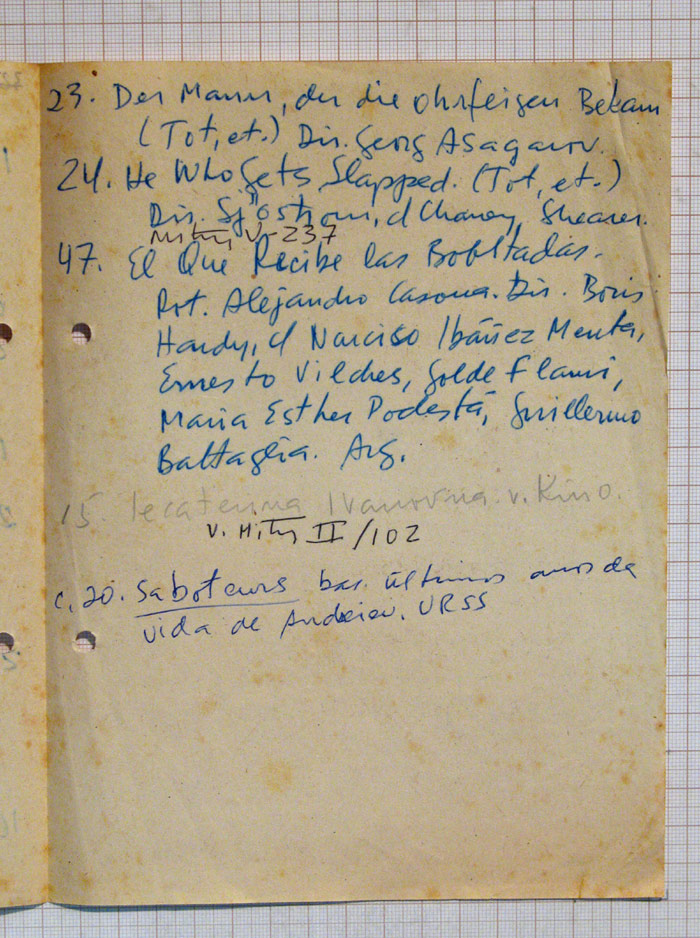 23. Der Mann, der die ohrfeigen Bekam
(Tot, et.) Dir. Georg Asagarov.
24. He Who Gets Slapped. (Tot, et.)
Dir. Sjöstrom, c/ Chaney, Shearer.
V-237
47. El Que Recibe las Bofetadas.
Alejandro Casona. Dir. Boris
Hardy, c/ Narciso Ibáñez Menta,
Ernesto Vilches, Golde Flami,
Maria Esther Podestá, Guillermo
Battaglia. Arg.
15. Iecaterina Ivanovna. v. Kino.
v. Mitry II/102
c. 20. Saboteurs bas. últimos anos da
vida de Andreiev. URSS